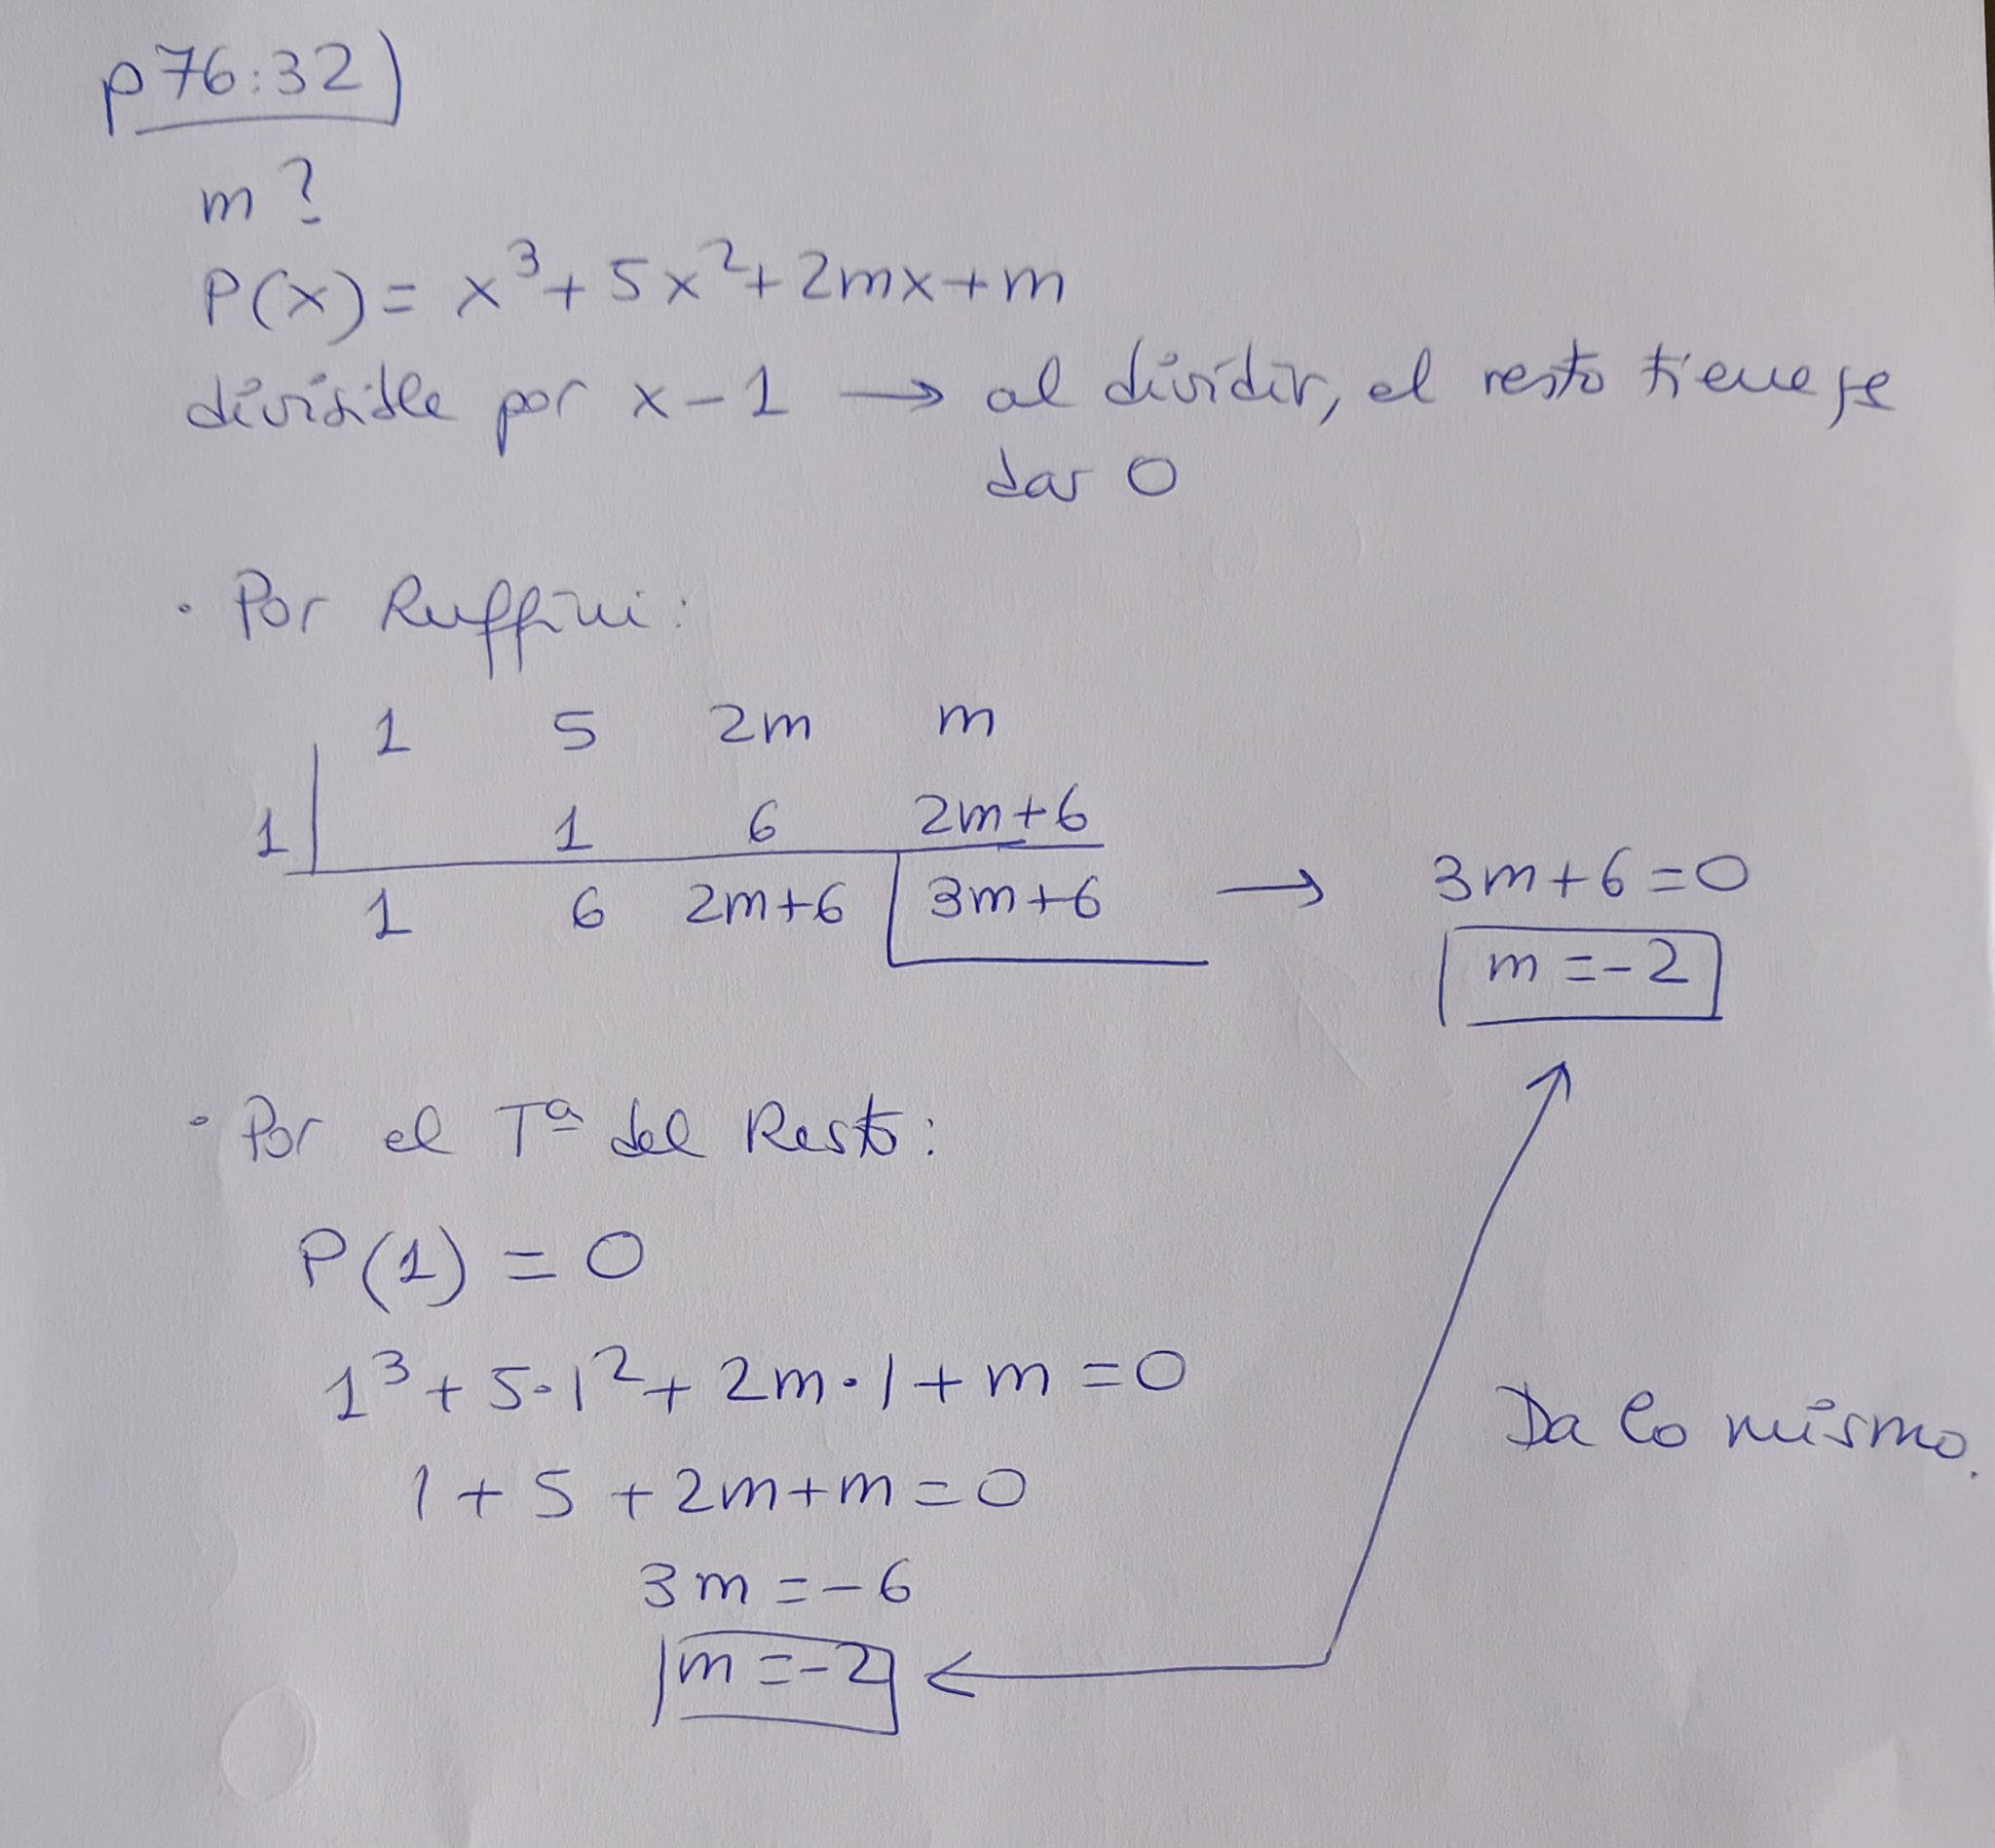 p76:32)
m?
P(x) = x³ + 5x² + 2mx + m
divisible por x - 1 → al dividir, el resto tiene qe
dar 0
· Por Ruffini:
1 5 2m m
1 1 6 2m+6
1 6 2m+6 3m+6 → 3m+6=0
m=-2
· Por el Tª del Resto:
P(1) = 0
1³ + 5·1² + 2m·1 + m = 0
Da lo mismo.
1 + 5 + 2m + m = 0
3m = -6
m = -2